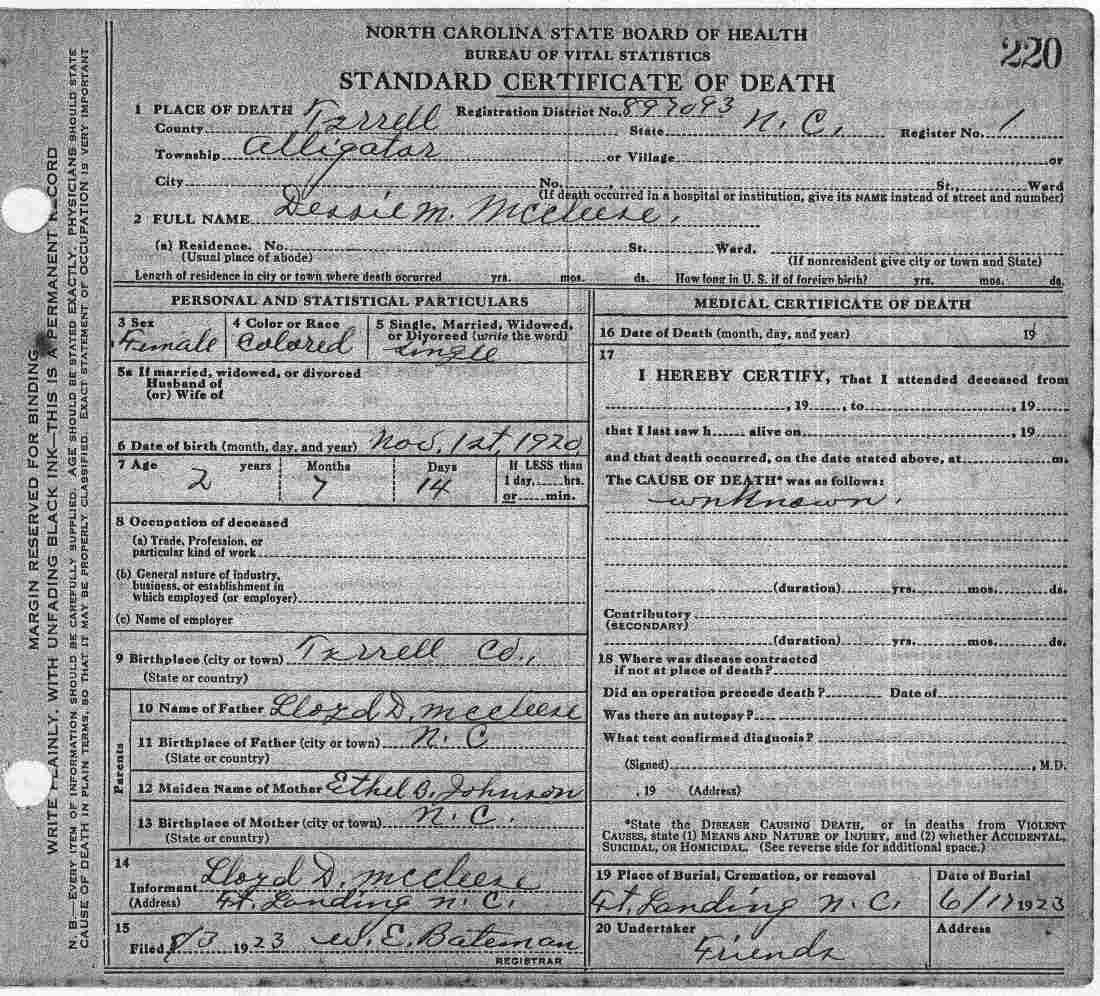 NORTH CAROLINA STATE BOARD OF HEALTH
BUREAU OF VITAL STATISTICS
220
STANDARD CERTIFICATE OF DEATH
1 PLACE OF DEATH Registration District No. 897093
County Tyrrell State N. C. Register No. 1
Township Alligator or Village or
City No. St., Ward
(If death occurred in a hospital or institution, give its NAME instead of street and number)
2 FULL NAME Dessie M. McCleese.
(a) Residence. No. St. Ward.
(Usual place of abode) (If nonresident give city or town and State)
Length of residence in city or town where death occurred yrs. mos. ds. How long in U. S. if of foreign birth? yrs. mos. ds.
PERSONAL AND STATISTICAL PARTICULARS
3 Sex 4 Color or Race 5 Single, Married, Widowed, or Divorced (write the word)
Female Colored Single
5a If married, widowed, or divorced
Husband of
(or) Wife of
6 Date of birth (month, day, and year) Nov. 1st, 1920
7 Age years Months Days If LESS than
2 7 14 1 day, hrs.
or min.
8 Occupation of deceased
(a) Trade, Profession, or
particular kind of work
(b) General nature of industry,
business, or establishment in
which employed (or employer)
(c) Name of employer
9 Birthplace (city or town) Tyrrell Co.,
(State or country)
Parents
10 Name of Father Lloyd D. McCleese
11 Birthplace of Father (city or town) N. C
(State or country)
12 Maiden Name of Mother Ethel B. Johnson
13 Birthplace of Mother (city or town) N. C.
(State or country)
14
Informant Lloyd D. McCleese
(Address) Ft. Landing N. C.
15
Filed 8/3 1923 W. E. Bateman
REGISTRAR
MEDICAL CERTIFICATE OF DEATH
16 Date of Death (month, day, and year) 19
17
I HEREBY CERTIFY, That I attended deceased from
, 19 , to , 19
that I last saw h alive on , 19
and that death occurred, on the date stated above, at m.
The CAUSE OF DEATH* was as follows:
unknown.
(duration) yrs. mos. ds.
Contributory
(SECONDARY)
(duration) yrs. mos. ds.
18 Where was disease contracted
if not at place of death?
Did an operation precede death? Date of
Was there an autopsy?
What test confirmed diagnosis?
(Signed) , M.D.
, 19 (Address)
*State the DISEASE CAUSING DEATH, or in deaths from VIOLENT
CAUSES, state (1) MEANS AND NATURE OF INJURY, and (2) whether ACCIDENTAL,
SUICIDAL, OR HOMICIDAL. (See reverse side for additional space.)
19 Place of Burial, Cremation, or removal Date of Burial
Ft. Landing N. C. 6/17 1923
20 Undertaker Address
Friends
MARGIN RESERVED FOR BINDING
WRITE PLAINLY, WITH UNFADING BLACK INK—THIS IS A PERMANENT RECORD
N. B.—EVERY ITEM OF INFORMATION SHOULD BE CAREFULLY SUPPLIED. AGE SHOULD BE STATED EXACTLY. PHYSICIANS SHOULD STATE
CAUSE OF DEATH IN PLAIN TERMS, SO THAT IT MAY BE PROPERLY CLASSIFIED. EXACT STATEMENT OF OCCUPATION IS VERY IMPORTANT